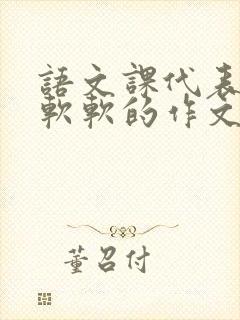 語文課代表
軟軟的作文
董召付